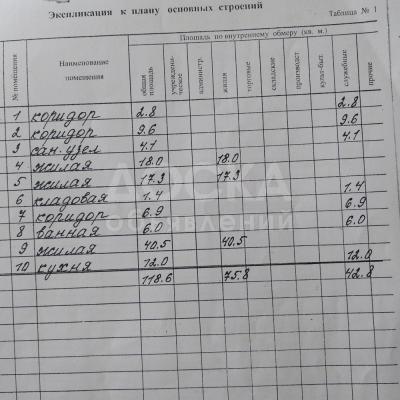 Экспликация к плану основных строений
Таблица № 1
№ помещения Наименование помещения Площадь по внутреннему обмеру (кв. м.)
общая площадь учрежденческое администр. жилая торговые складские производст культ-быт. служебные прочие
1 коридор 2.8 2.8
2 коридор 9.6 9.6
3 сан. узел 4.1 4.1
4 жилая 18.0 18.0
5 жилая 17.3 17.3
6 кладовая 1.4 1.4
7 коридор 6.9 6.9
8 ванная 6.0 6.0
9 жилая 40.5 40.5
10 кухня 12.0 12.0
118.6 75.8 42.8
ДОСКА
объявлений